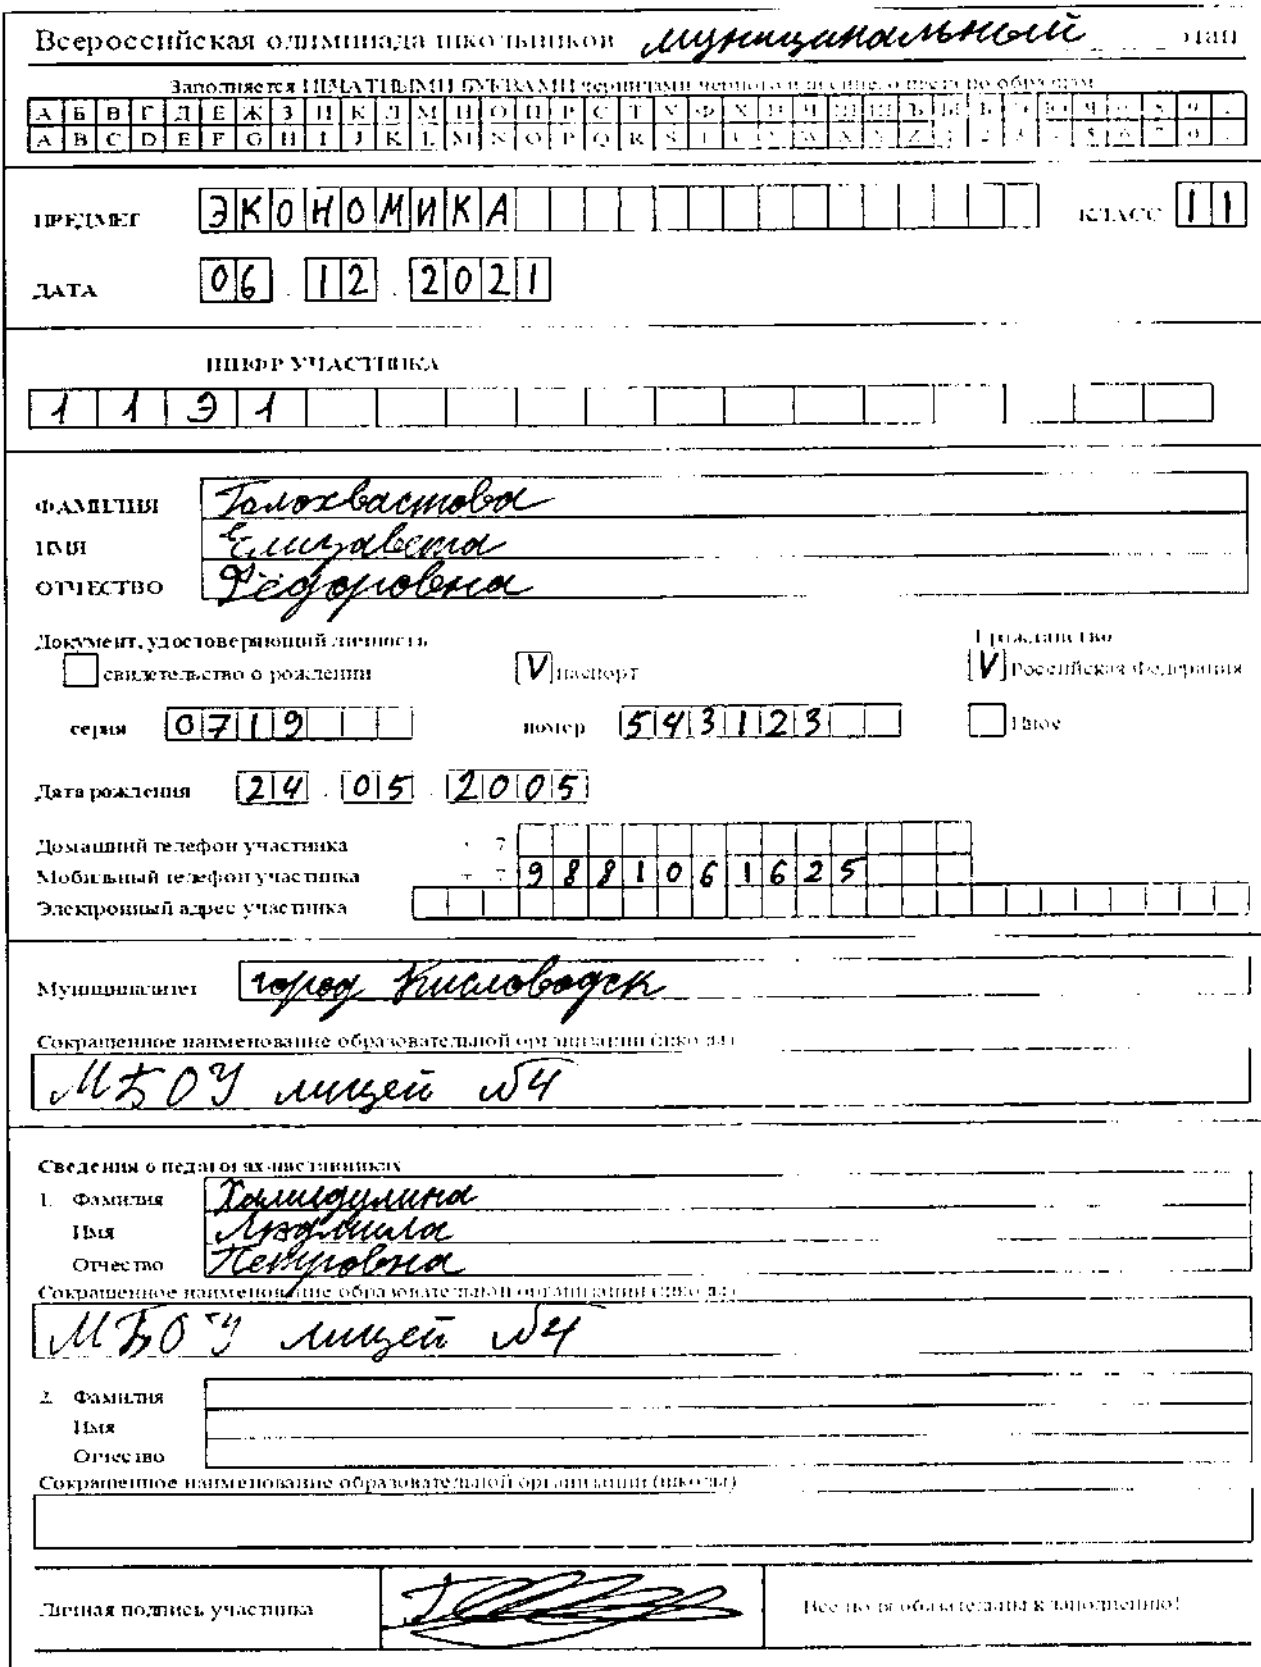 Всероссийская олимпиада школьников муниципальный этап
Заполняется ПЕЧАТНЫМИ БУКВАМИ чернилами черного или синего цвета по образцам
А Б В Г Д Е Ж З И К Л М Н О П Р С Т У Ф Х Ц Ч Ш Щ Ъ Ы Ь Э Ю Я
A B C D E F G H I J K L M N O P Q R S T U V W X Y Z 1 2 3 4 5 6 7
ПРЕДМЕТ ЭКОНОМИКА КЛАСС 11
ДАТА 06.12.2021
ШИФР УЧАСТНИКА
11Э1
ФАМИЛИЯ Голохвастова
ИМЯ Елизавета
ОТЧЕСТВО Фёдоровна
Документ, удостоверяющий личность Гражданство
свидетельство о рождении V паспорт V Российская Федерация
серия 0719 номер 543123 Иное
Дата рождения 24.05.2005
Домашний телефон участника + 7
Мобильный телефон участника + 7 9881061625
Электронный адрес участника
Муниципалитет город Кисловодск
Сокращенное наименование образовательной организации (школы)
МБОУ лицей №4
Сведения о педагогах-наставниках
1. Фамилия Халиидулина
Имя Людмила
Отчество Петровна
Сокращенное наименование образовательной организации (школы)
МБОУ лицей №4
2. Фамилия
Имя
Отчество
Сокращенное наименование образовательной организации (школы)
Личная подпись участника Все поля обязательны к заполнению!